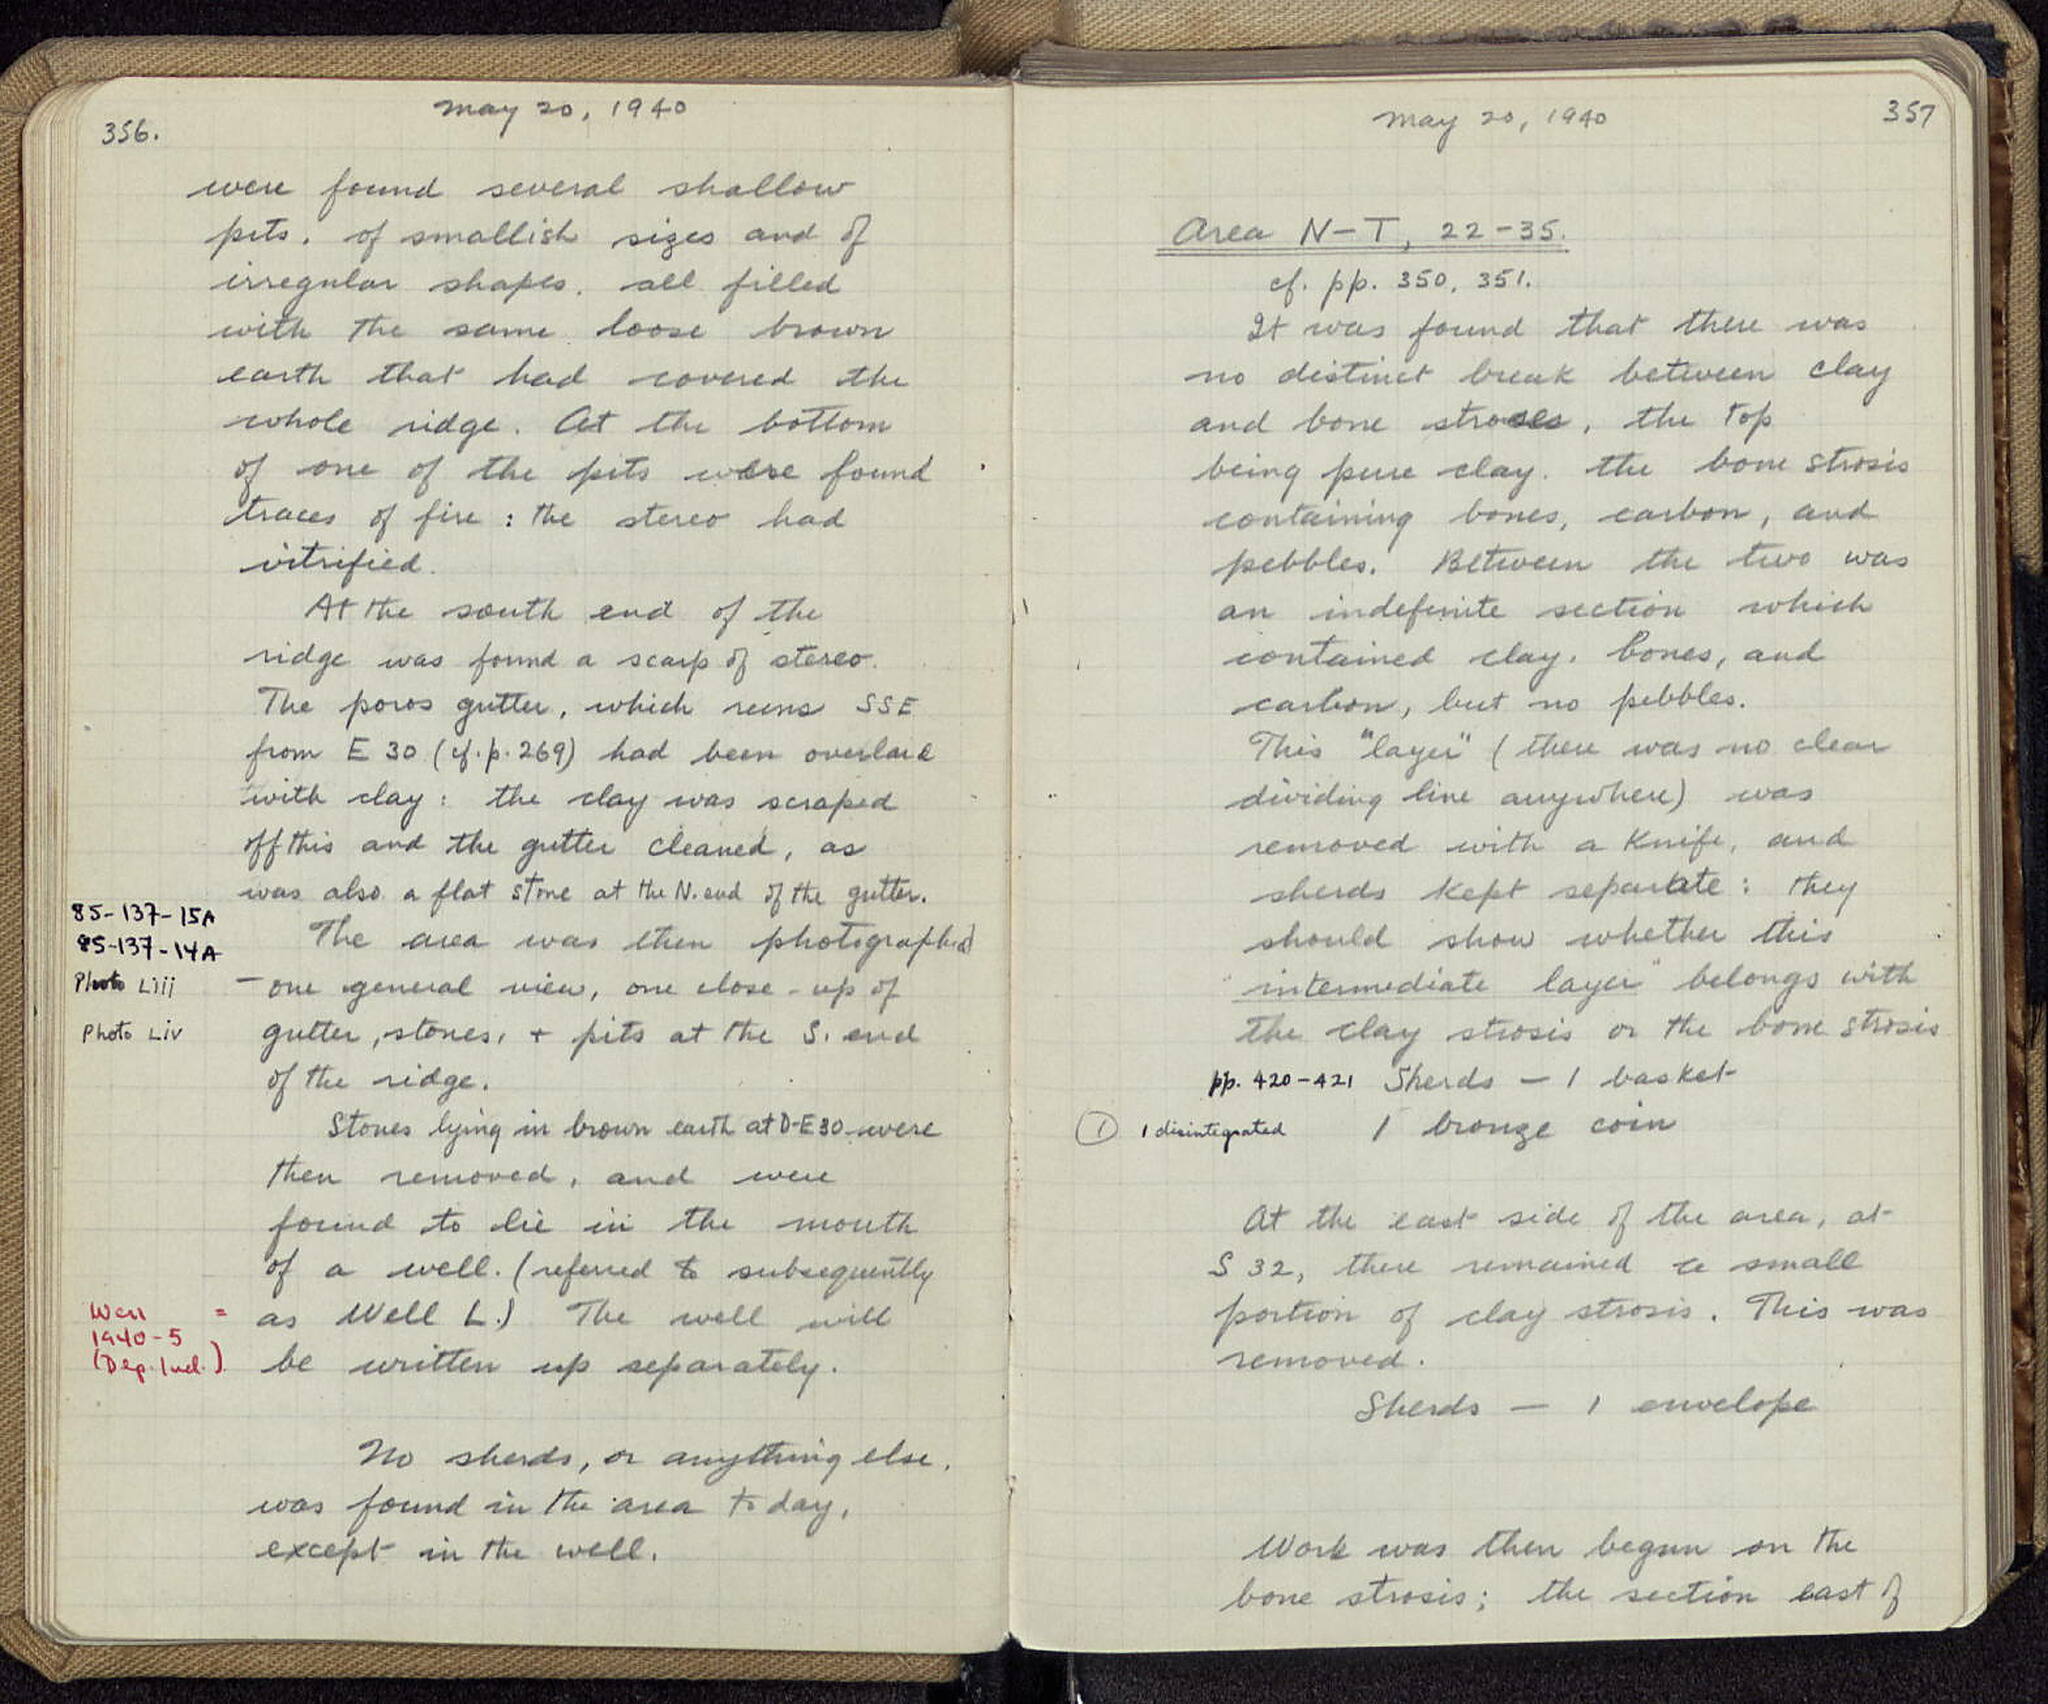 356.
May 20, 1940
were found several shallow
pits, of smallish sizes and of
irregular shapes, all filled
with the same loose brown
earth that had covered the
whole ridge. At the bottom
of one of the pits were found
traces of fire : the stereo had
vitrified.
At the south end of the
ridge was found a scarp of stereo.
The poros gutter, which runs SSE
from E 30 (cf. p. 269) had been overlaid
with clay : the clay was scraped
off this and the gutter cleaned, as
was also a flat stone at the N. end of the gutter.
85-137-15A
85-137-14A
The area was then photographed
Photo Liii
– one general view, one close-up of
Photo Liv
gutter, stones, + pits at the S. end
of the ridge.
Stones lying in brown earth at D-E 30 were
then removed, and were
found to lie in the mouth
of a well. (referred to subsequently
Well =
1940-5
(Dep. Ind.)
as Well L.) The well will
be written up separately.
No sherds, or anything else,
was found in the area today,
except in the well.
May 20, 1940
357
Area N–T, 22-35.
cf. pp. 350, 351.
It was found that there was
no distinct break between clay
and bone stroses, the top
being pure clay, the bone strosis
containing bones, carbon, and
pebbles. Between the two was
an indefinite section which
contained clay, bones, and
carbon, but no pebbles.
This "layer" (there was no clear
dividing line anywhere) was
removed with a knife, and
sherds kept separate : they
should show whether this
"intermediate layer" belongs with
the clay strosis or the bone strosis
pp. 420-421 Sherds – 1 basket
(1) 1 disintegrated 1 bronze coin
At the east side of the area, at
S 32, there remained a small
portion of clay strosis. This was
removed.
Sherds – 1 envelope
Work was then begun on the
bone strosis; the section east of